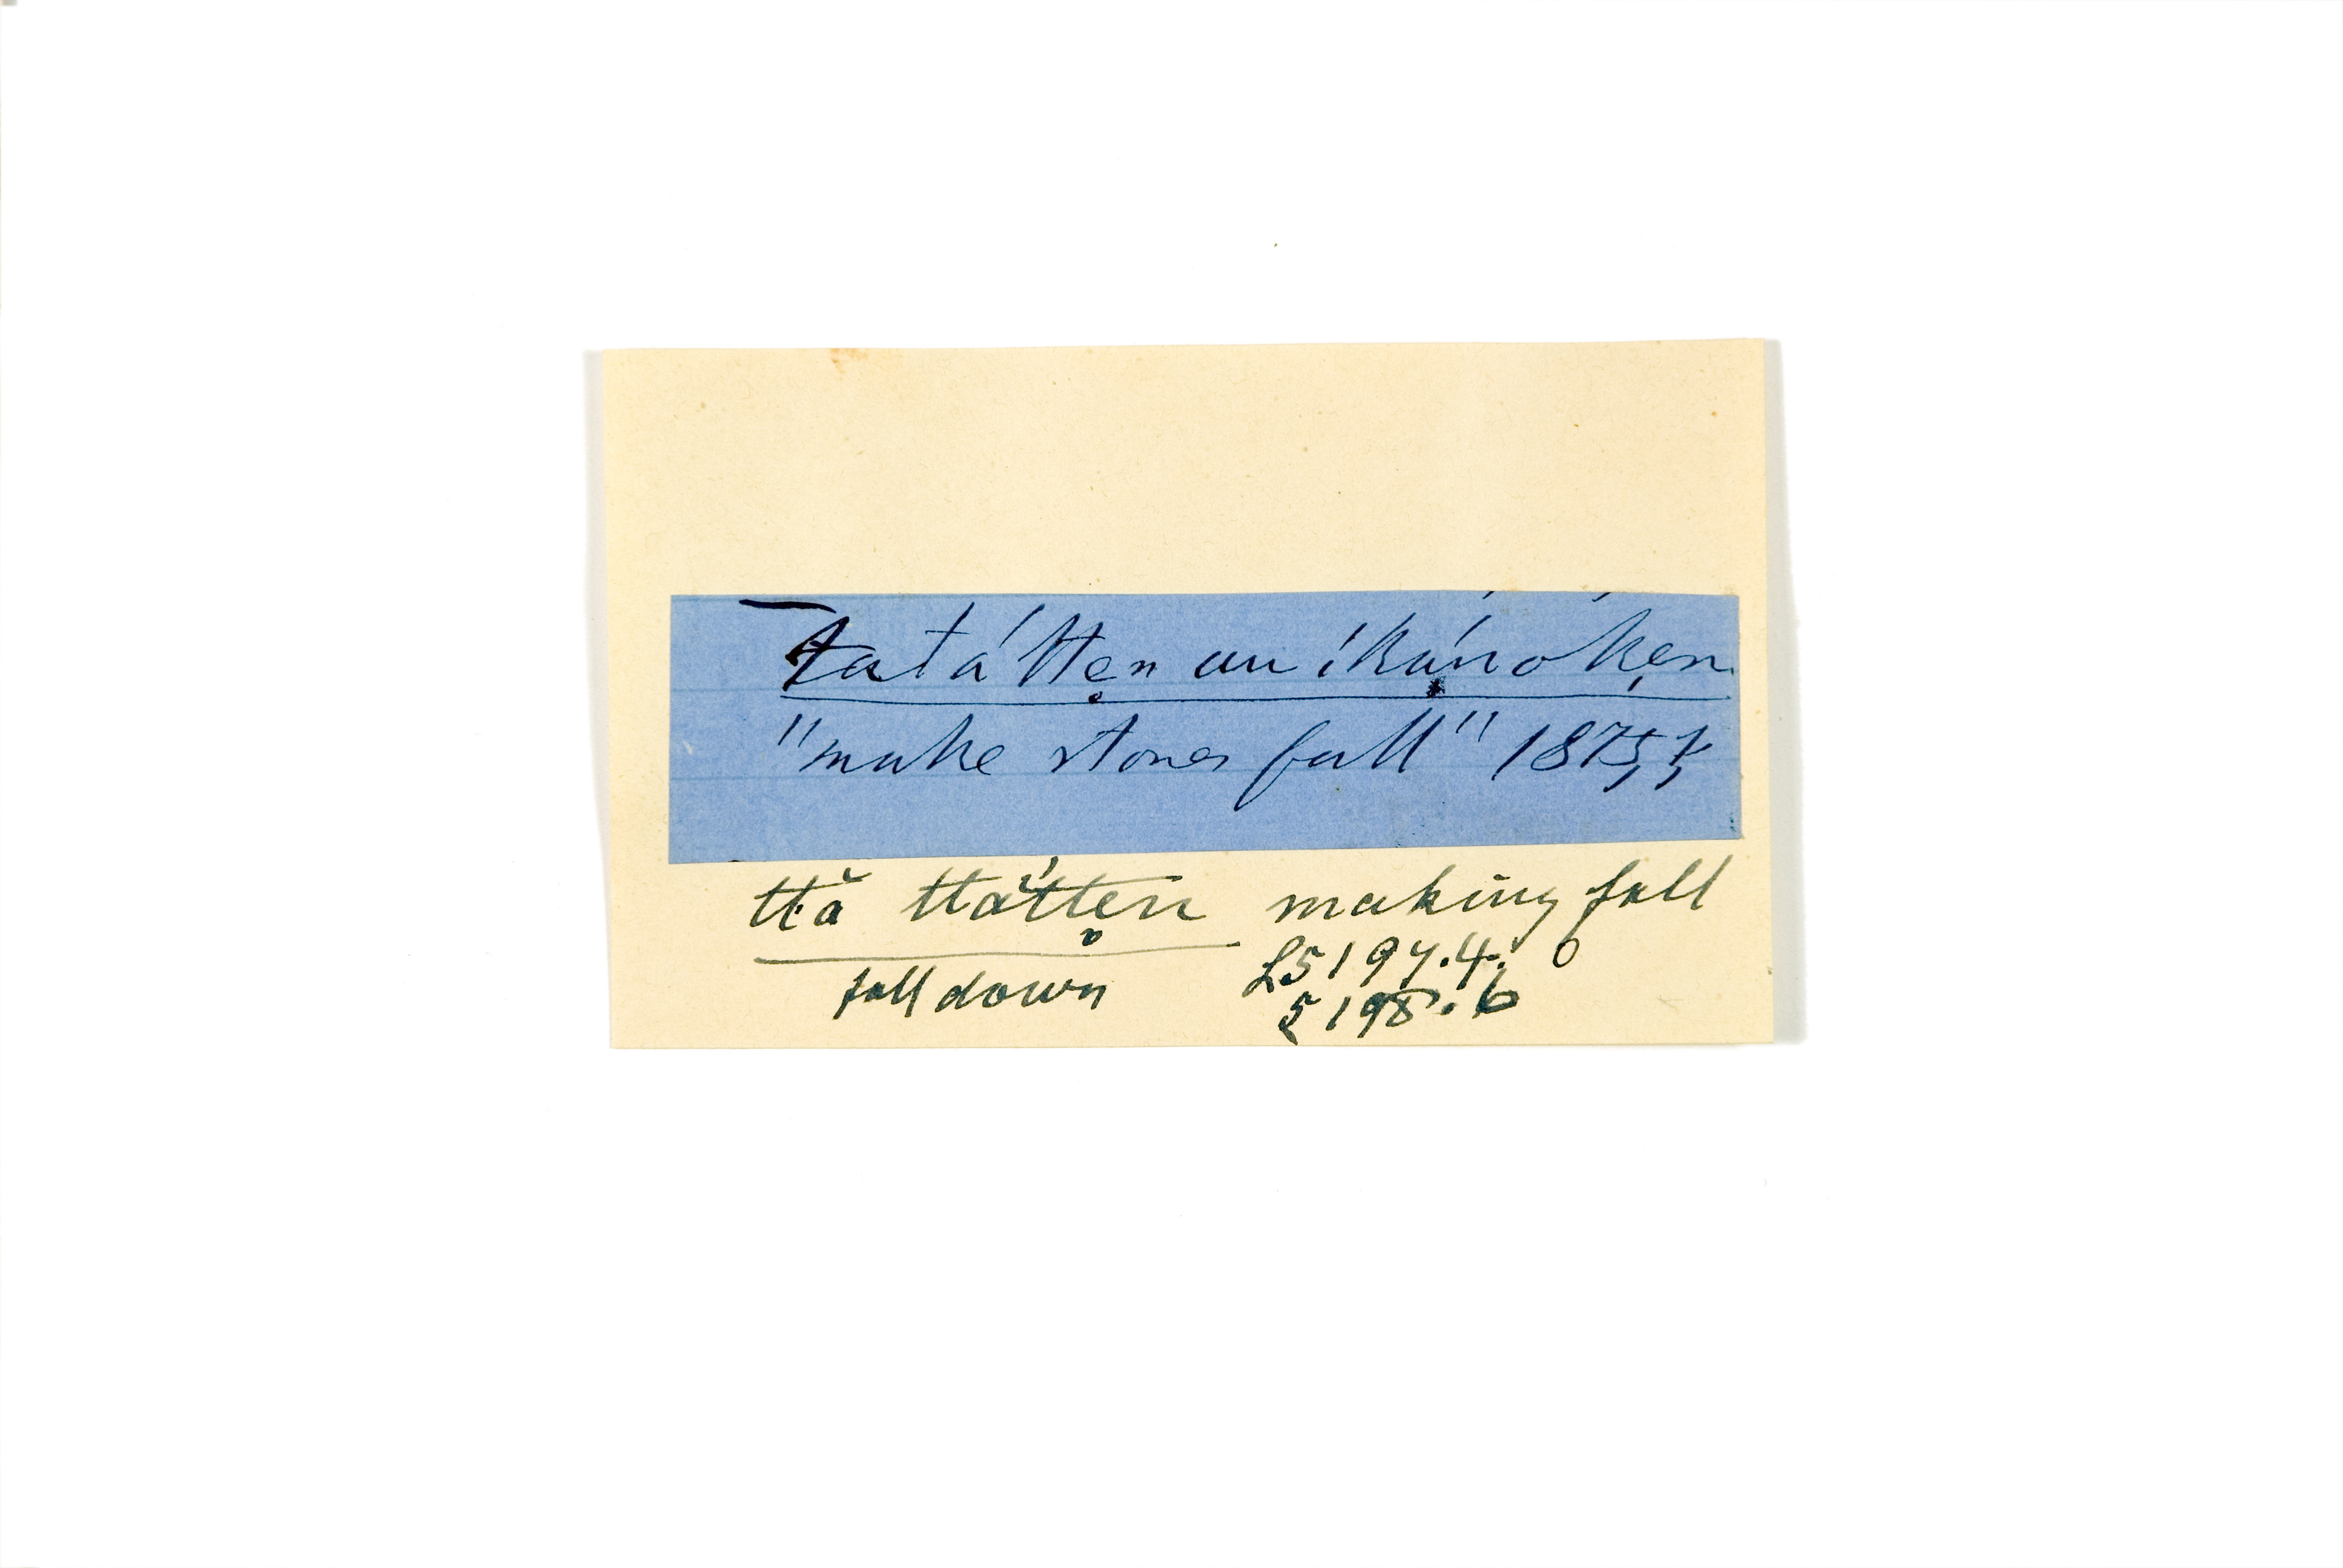 tatá tten au íkúǹoken
"make stones fall" 1875,7
ttă ttắtten making fall
fall down L5197.4.
5198.6